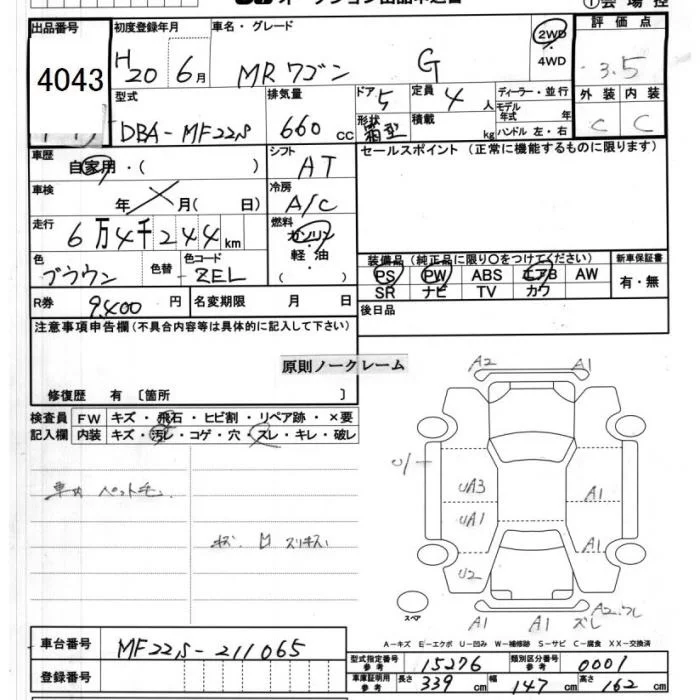 出品番号
4043
初度登録年月
H20 6月
車名・グレード
MRワゴン G
2WD
・
4WD
評価点
3.5
型式
DBA-MF22S
排気量
660 cc
ドア
5
定員
4 人
形状
箱型
積載
kg
ディーラー・並行
モデル年式 年
ハンドル 左・右
外装 内装
C C
車歴
自家用・( )
シフト
AT
セールスポイント (正常に機能するものに限ります)
車検
年 月( 日)
冷房
A/C
走行
6万4千244km
燃料
ガソリン
・
軽・油
( ・ )
色
ブラウン
色替
色コード
ZEL
装備品(純正品に限り○をつけてください)
新車保証書
PS PW ABS エアB AW
SR ナビ TV カワ
有・無
R券 9,400 円
名変期限 月 日
後日品
注意事項申告欄(不具合内容等は具体的に記入して下さい)
原則ノークレーム
修復歴 有〔箇所 〕
検査員
記入欄
FW キズ・飛石・ヒビ割・リペア跡・×要
内装 キズ・汚レ・コゲ・穴・スレ・キレ・破レ
車内 ペット毛
A2 A1
U1
UA3
UA1
U2
A1
A1
A1 A1
スペア
A-キズ E-エクボ U-凹み W-補修跡 S-サビ C-腐食 XX-交換済
車台番号
MF22S-211065
登録番号
型式指定番号
参考
15276
類別区分番号
参考
0001
車庫証明用
参考
長さ 339 cm 幅 147 cm 高さ 162 cm